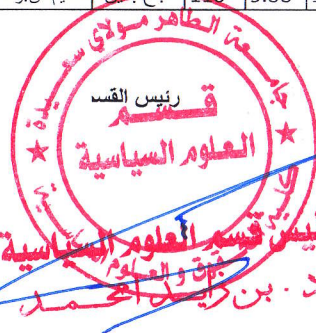 جامعة الطاهر مولاي سعيدة
رئيس القسم
قسم
العلوم السياسية
رئيس قسم العلوم السياسية
د. بن زايد امحمد